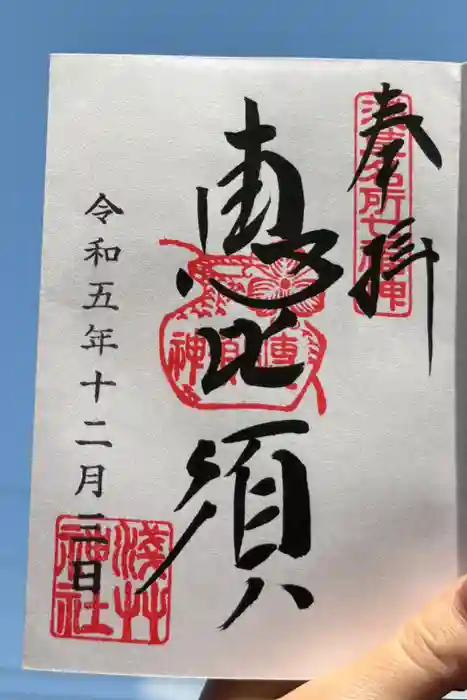 奉拝
淺草名所七福神
惠比須
令和五年十二月三日
淺草
神社